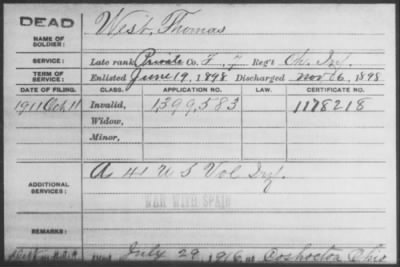 DEAD
NAME OF SOLDIER: West, Thomas
SERVICE: Late rank Private Co. F, 7 Reg't Oh. Inf.
TERM OF SERVICE: Enlisted June 19, 1898 Discharged Nov 6, 1898
DATE OF FILING. CLASS. APPLICATION NO. LAW. CERTIFICATE NO.
1911 Oct. 11 Invalid, 1,399,583 1178218
Widow,
Minor,
ADDITIONAL SERVICES: A 41 U S Vol Inf.
WAR WITH SPAIN
REMARKS:
July 29, 1916 at Coshocton Ohio